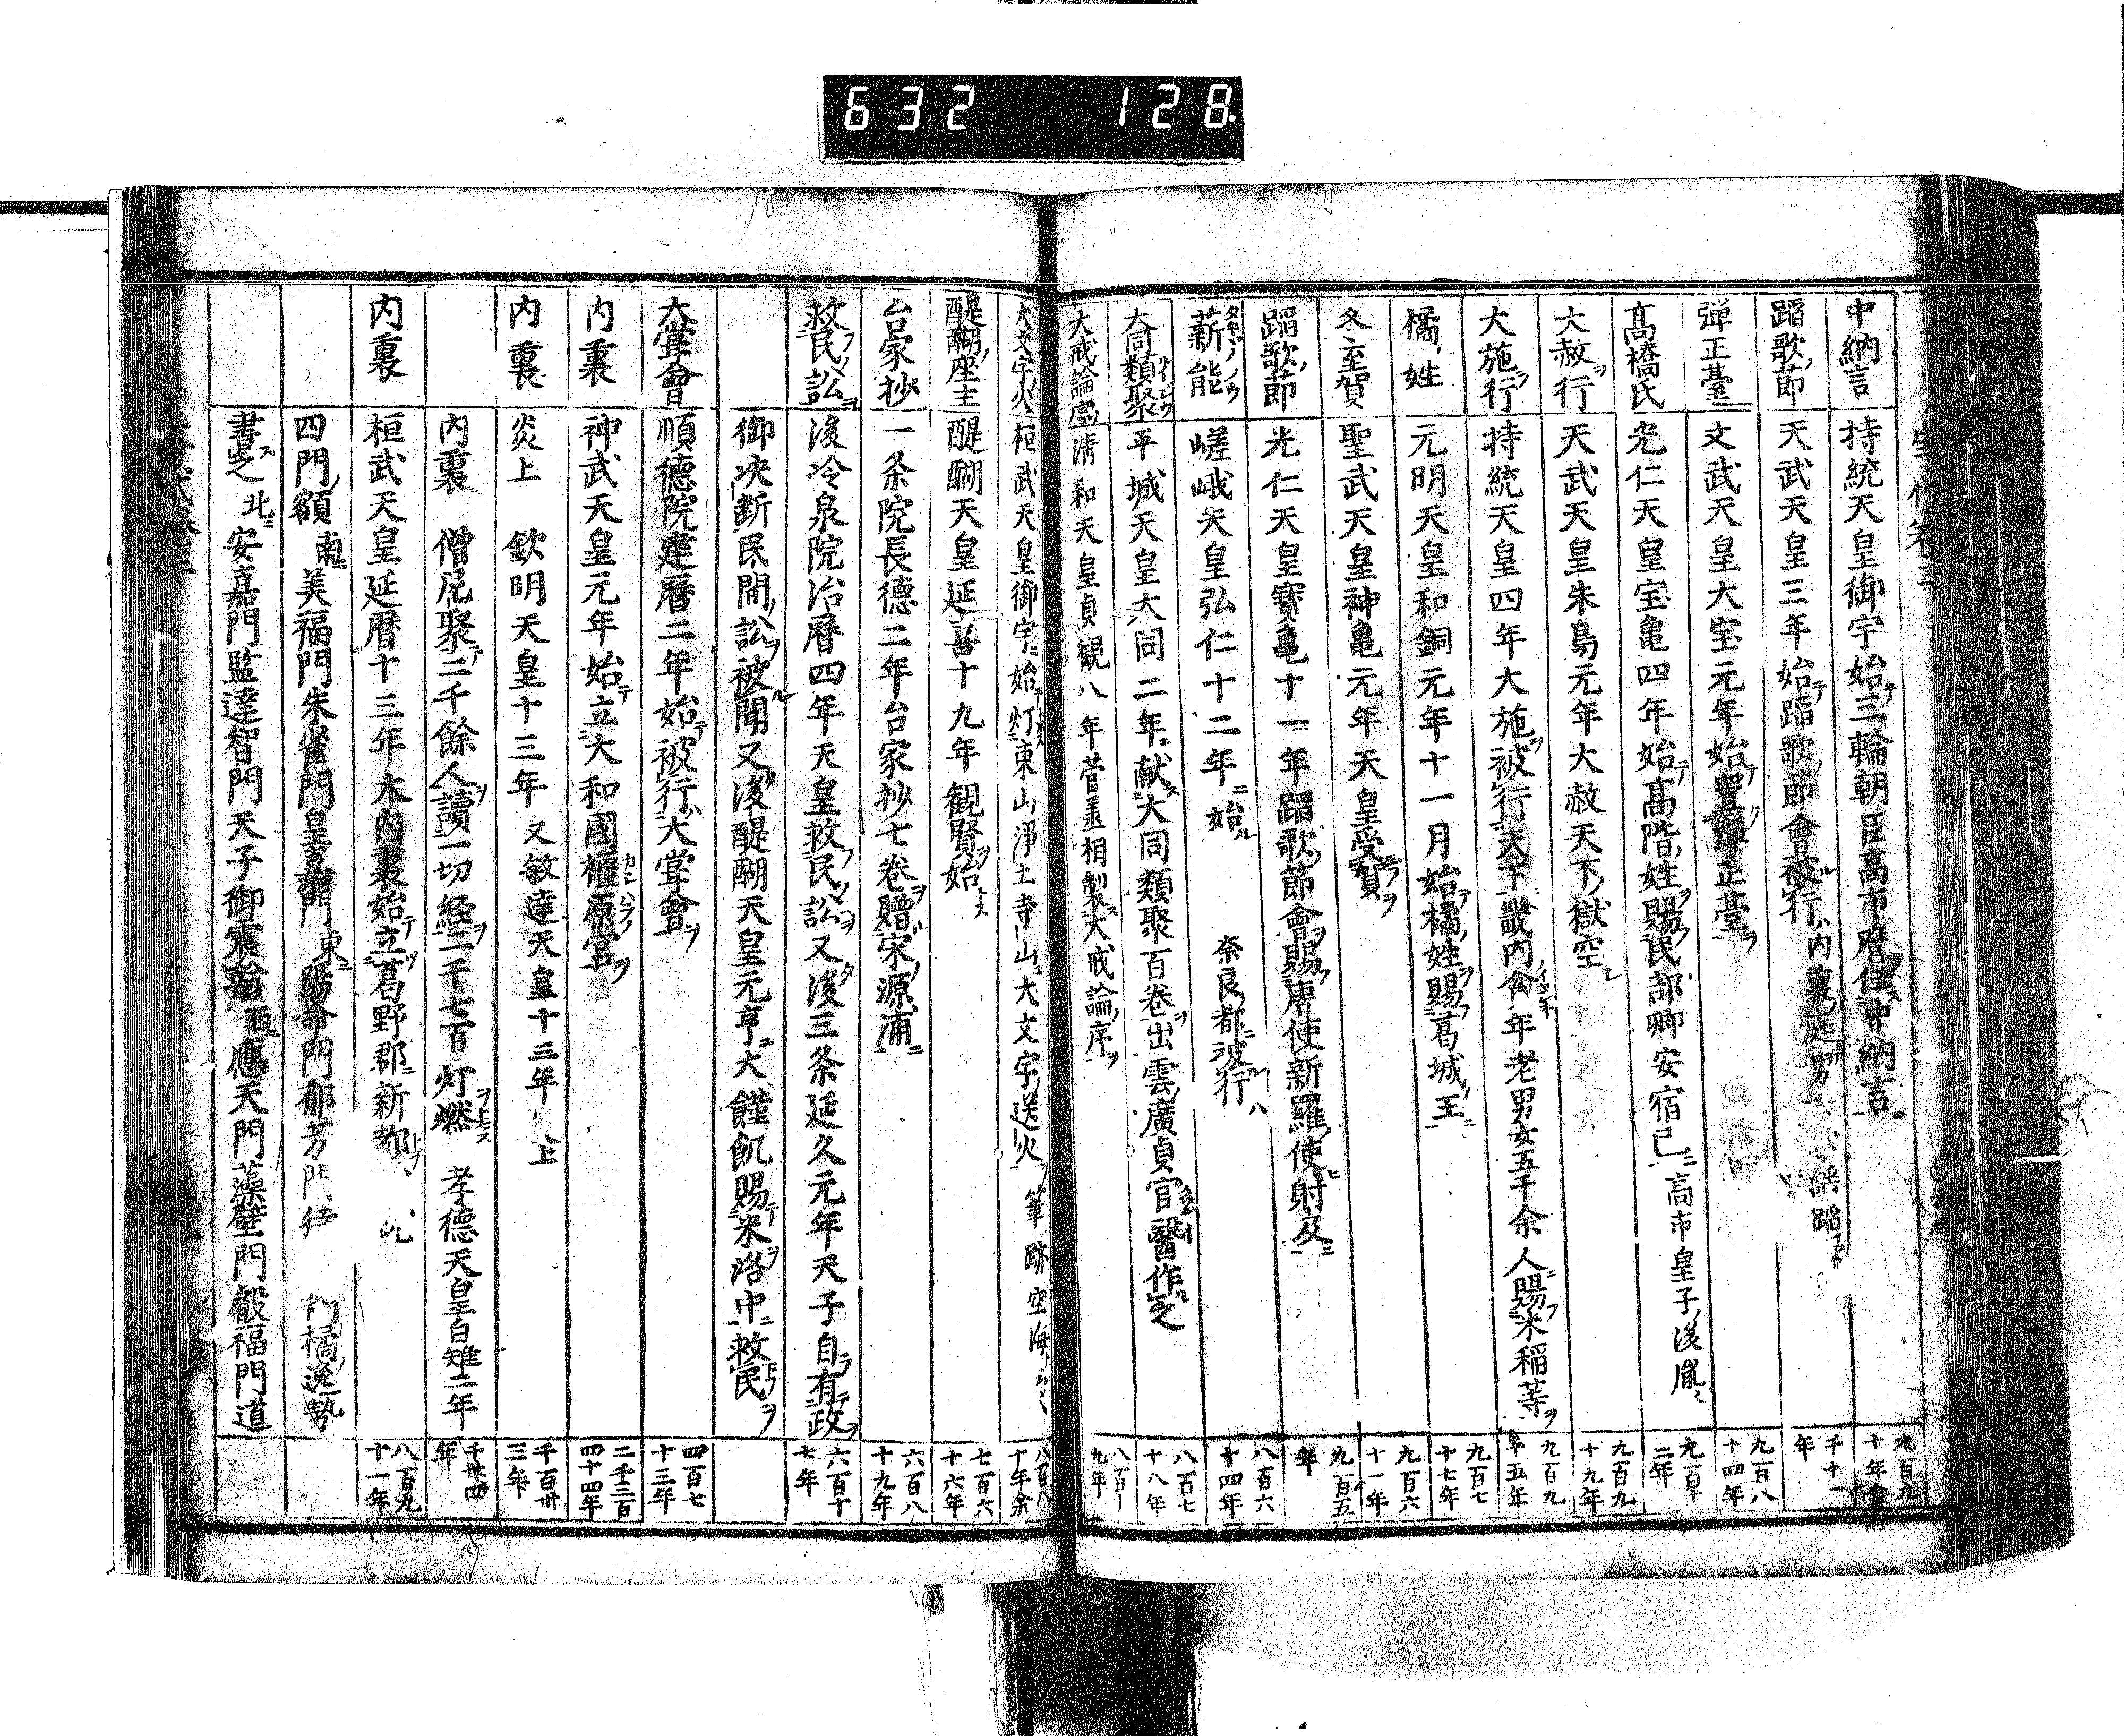 632 128
中納言 持統天皇御宇始テ三輪朝臣高市麿任中納言 九百九十年余
蹈歌ノ節 天武天皇三年始テ蹈歌ノ節會被行ル内裏ノ庭男 蹈 千十一年
弾正臺 文武天皇大宝元年始テ置ク弾正臺ヲ 九百八十四年
髙橋氏 光仁天皇宝亀四年始テ髙階ノ姓ヲ賜フ民部卿安宿已ニ高市皇子ノ後胤 九百十二年
大赦行 天武天皇朱鳥元年大赦天下ノ獄空シ 九百九十九年
大施行 持統天皇四年大施ヲ被行天下畿内年老男女五千余人賜フ米稲等ヲ 九百九十五年
橘ノ姓 元明天皇和銅元年十一月始テ橘ノ姓ヲ賜フ葛城ノ王ニ 九百七十七年
冬至賀 聖武天皇神亀元年天皇受賀ヲ 九百六十一年
蹈歌ノ節 光仁天皇寳亀十一年蹈歌ノ節會ヲ賜フ唐使新羅ノ使射及ニ 九百五年
薪能 嵯峨天皇弘仁十二年ニ始ル 奈良ノ都ニ被行ル 八百六十四年
大同類聚 平城天皇大同二年ニ献ス大同類聚百卷ヲ出雲ノ廣貞官醫作之 八百七十八年
大戒論ノ序 清和天皇貞観八年菅丞相製ス大戒論ノ序ヲ 八百十九年
大文字ノ火 桓武天皇御宇ニ始テ灯東山浄土寺山ニ大文字ノ送火ヲ筆跡空海 八百八十年余
醍醐ノ座主 醍醐天皇延喜十九年観賢ヲ始トス 七百六十六年
台家抄 一条院長德二年台家抄七卷ヲ贈ル宋ノ源清ニ 六百八十九年
救民ノ訟ヲ 後冷泉院治曆四年天皇救フ民ノ訟ヲ又後三条延久元年天子自ラ有テ政ヲ 六百十七年
御决断民間ノ訟ヲ被聞又後醍醐天皇元亨ニ大饉飢賜テ米ヲ洛中ニ救フ民ヲ
大甞會 順德院建曆二年始テ被行大甞會ヲ 四百七十三年
内裏 神武天皇元年始テ立大和國橿原宮ヲ 二千三百四十四年
内裏 炎上 欽明天皇十三年 又敏達天皇十三年 上 千百卅三年
内裏 僧尼聚テ二千餘人ヲ讀一切経ヲ二千七百灯ヲ燃ス 孝德天皇白雉二年 千卅四年
内裏 桓武天皇延曆十三年大内裏始テ立ツ葛野郡ニ新都 八百九十一年
四門ノ額 南ニ美福門朱雀門皇嘉門東ニ陽命門郁芳門待 門橘ノ逸勢
書ス之北ニ安嘉門監達智門天子御震翰西ニ應天門藻壁門殷福門道